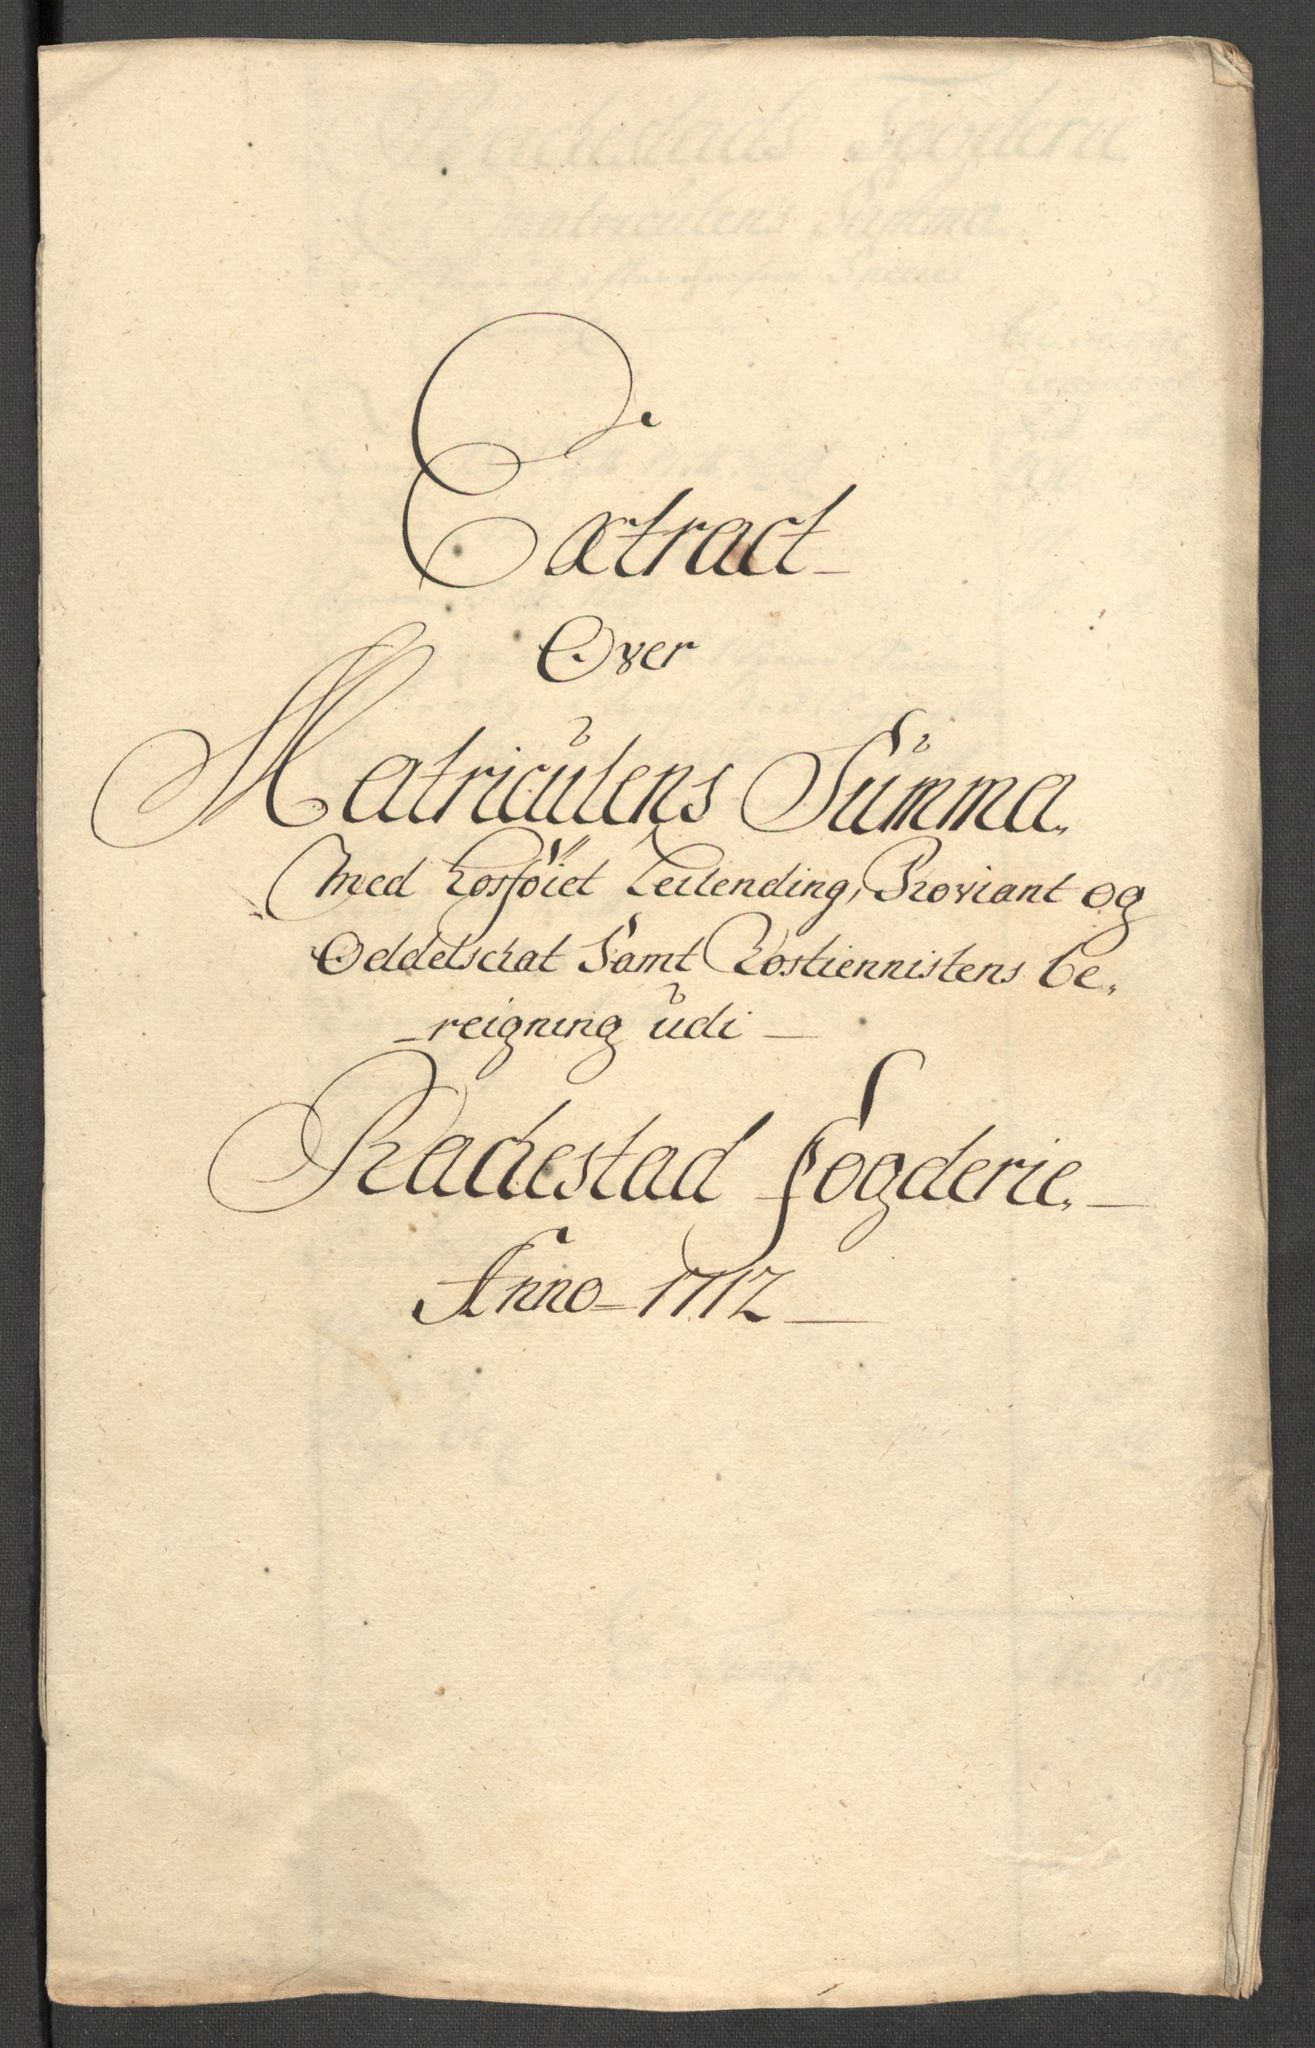 Extract
Over
Matriculens Summa.
Med hosføiet Leilending, Proviant og
Oddelschat Samt Rostiennistens be,
reigning udi
Rachestad fogderie.
Anno 1712